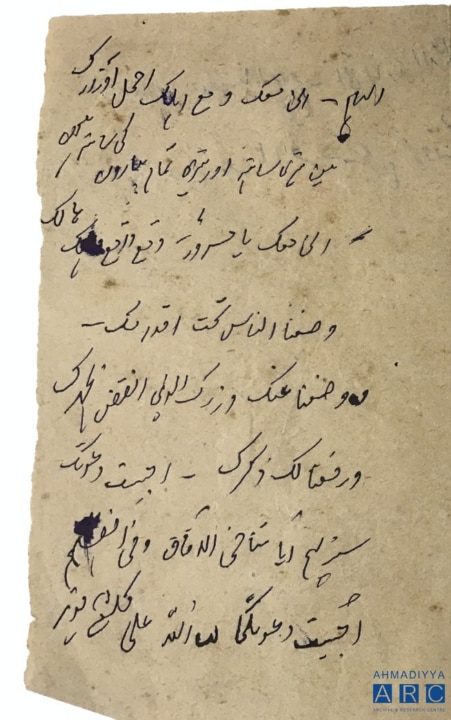 الہام – انی معک و مع اہلک احمل اوزارک
میں تیرے ساتھ اور تیرے تمام پیاروں کے ساتھ ہوں
انی معک یا مسرور وقع واقع ہالک
وضعنا الناس تحت اقدامک –
ووضعنا عنک وزرک الذی انقض ظہرک
ورفعنا لک ذکرک – اجیبت دعوتک
سنریہم آیاتنا فی الآفاق وفی انفسہم
اجیبت دعوتکما ان اللہ علی کل شیء قدیر
AHMADIYYA
ARC
ARCHIVE & RESEARCH CENTRE